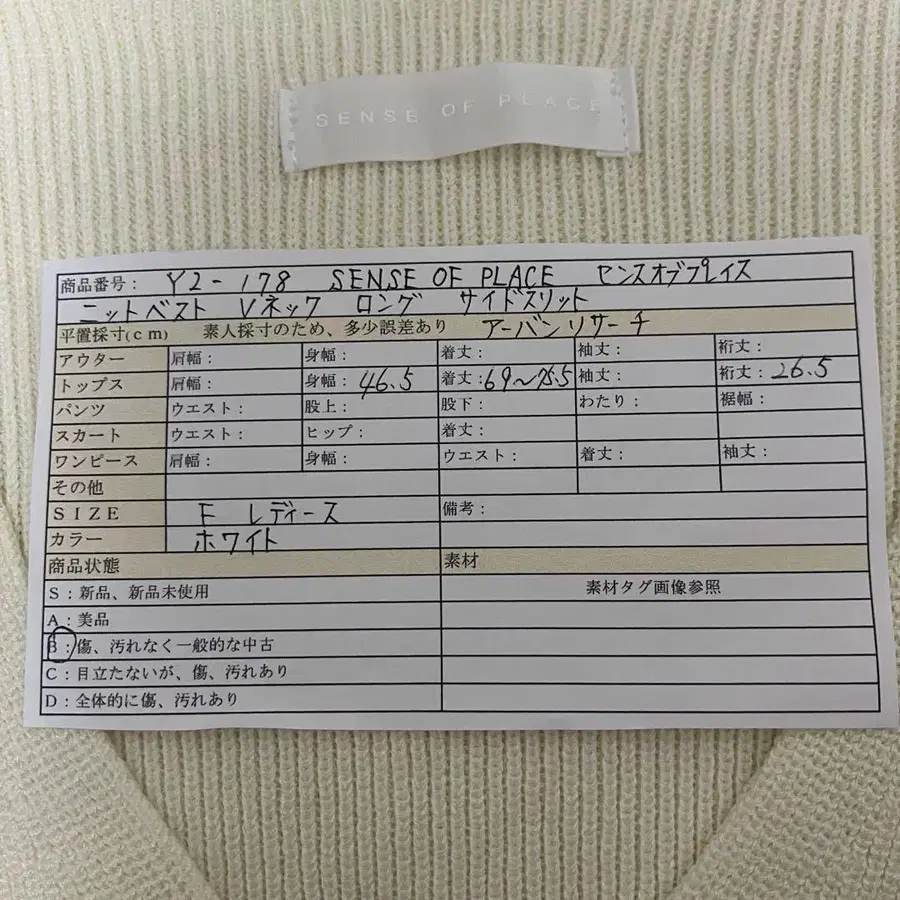 SENSE OF PLACE
商品番号： Y2-178 SENSE OF PLACE センスオブプレイス
ニットベスト Vネック ロング サイドスリット
平置採寸(cm) 素人採寸のため、多少誤差あり アーバンリサーチ
アウター 肩幅： 身幅： 着丈： 袖丈： 裄丈：
トップス 肩幅： 身幅： 46.5 着丈：69〜75.5 袖丈： 裄丈：26.5
パンツ ウエスト： 股上： 股下： わたり： 裾幅：
スカート ウエスト： ヒップ： 着丈：
ワンピース 肩幅： 身幅： ウエスト： 着丈： 袖丈：
その他
SIZE F レディース 備考：
カラー ホワイト
商品状態 素材
S：新品、新品未使用 素材タグ画像参照
A：美品
B：傷、汚れなく一般的な中古
C：目立たないが、傷、汚れあり
D：全体的に傷、汚れあり